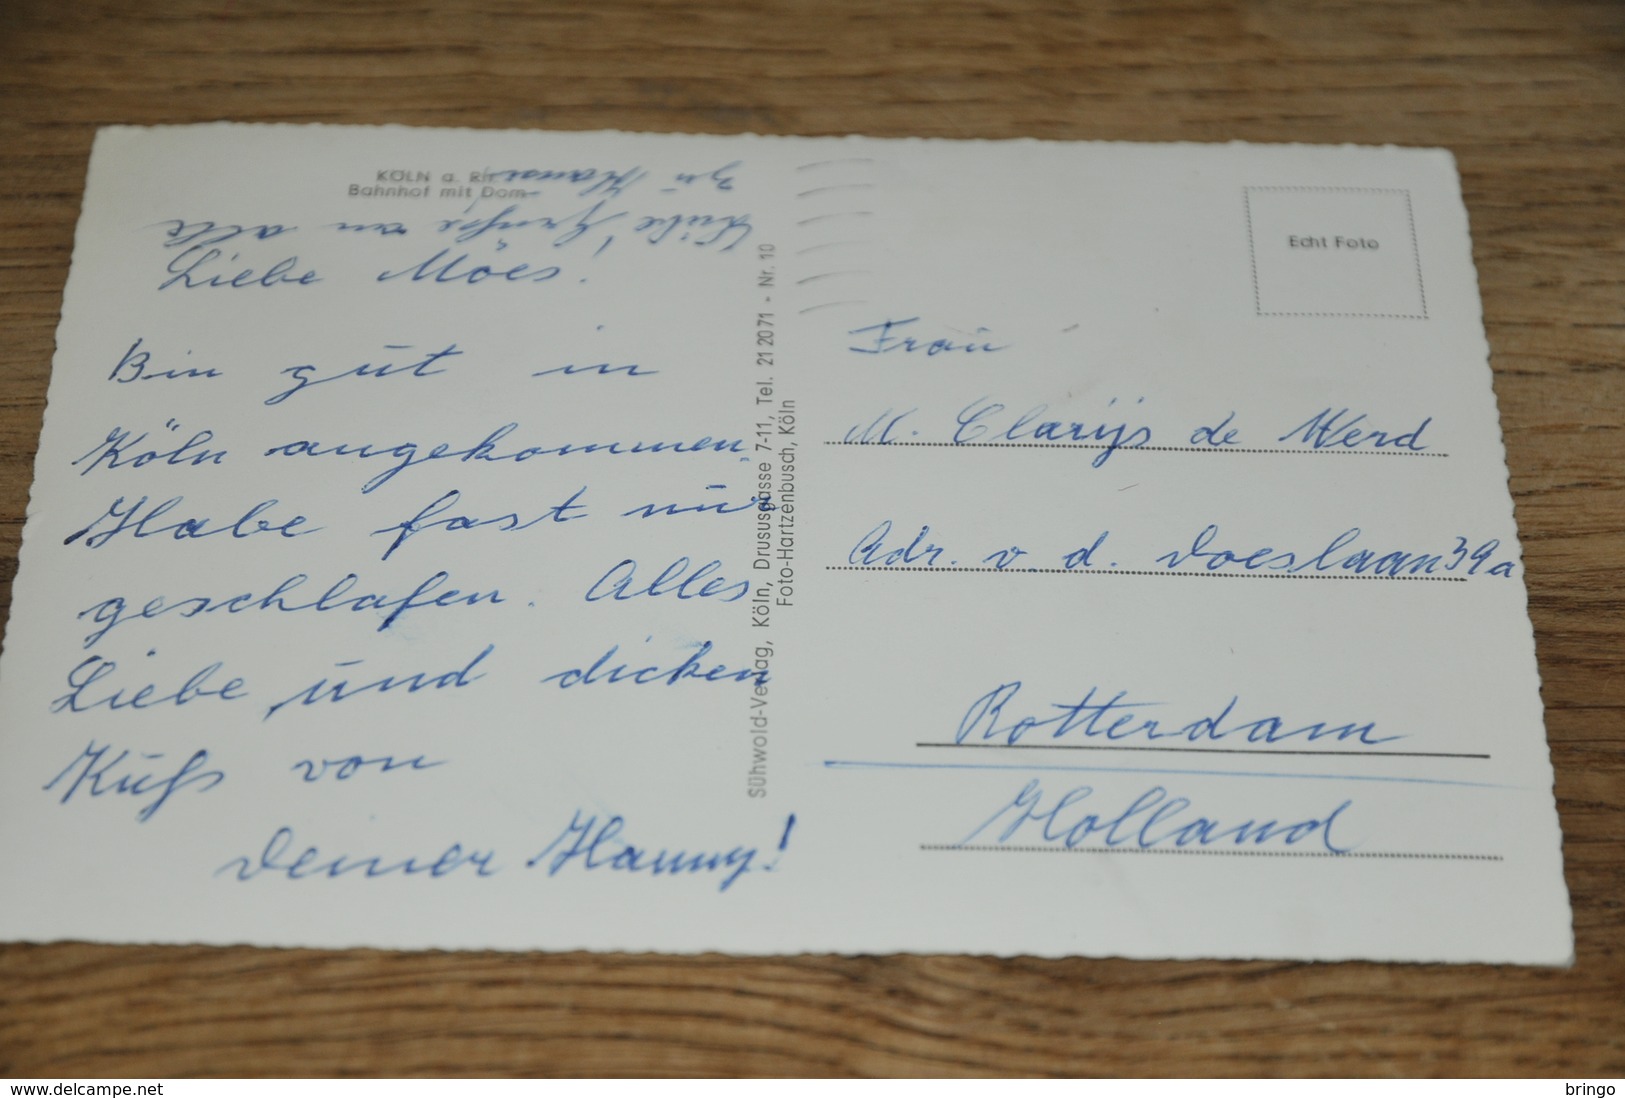 KÖLN a. Rh.
Bahnhof mit Dom
Liebe Grüße an alle
zu Hause
Liebe Möes!
Bin gut in
Köln angekommen.
Habe fast nur
geschlafen. Alles
Liebe und dicken
Kuß von
Deiner Hanny!
Sühwold-Verlag, Köln, Drususgasse 7-11, Tel. 21 2071 - Nr. 10
Foto-Hartzenbusch, Köln
Echt Foto
Frau
M. Clarijs de Werd
Adr. v. d. Doeslaan 39a
Rotterdam
Holland
delcampe.net
bringo